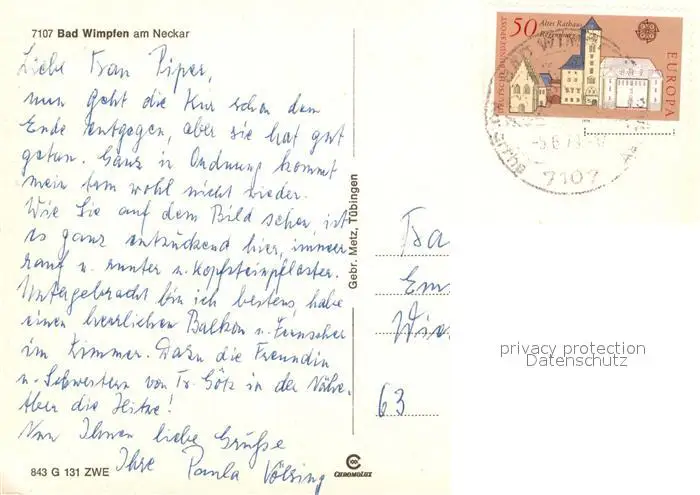 7107 Bad Wimpfen am Neckar
Liebe Frau Piper,
nun geht die Kur schon dem
Ende entgegen, aber sie hat gut
getan. Ganz in Ordnung kommt
mein wohl nicht wieder.
Wie Sie auf dem Bild sehen, ist
es ganz entzückend hier, immer
rauf u. runter u. Kopfsteinpflaster.
Untergebracht bin ich bestens, habe
einen herrlichen Balkon u. Fernseher
im Zimmer. Dazu die Freundin
u. Schwestern von Fr. Götz in der Nähe.
Aber die Hitze!
Nun Ihnen liebe Grüße
Ihre Paula
843 G 131 ZWE
Gebr. Metz, Tübingen
CHROMOLUX
50 Altes Rathaus
Regensburg
DEUTSCHE BUNDESPOST
EUROPA
BAD WIMPFEN
7107
Fra
Em
Wie
63
privacy protection
Datenschutz